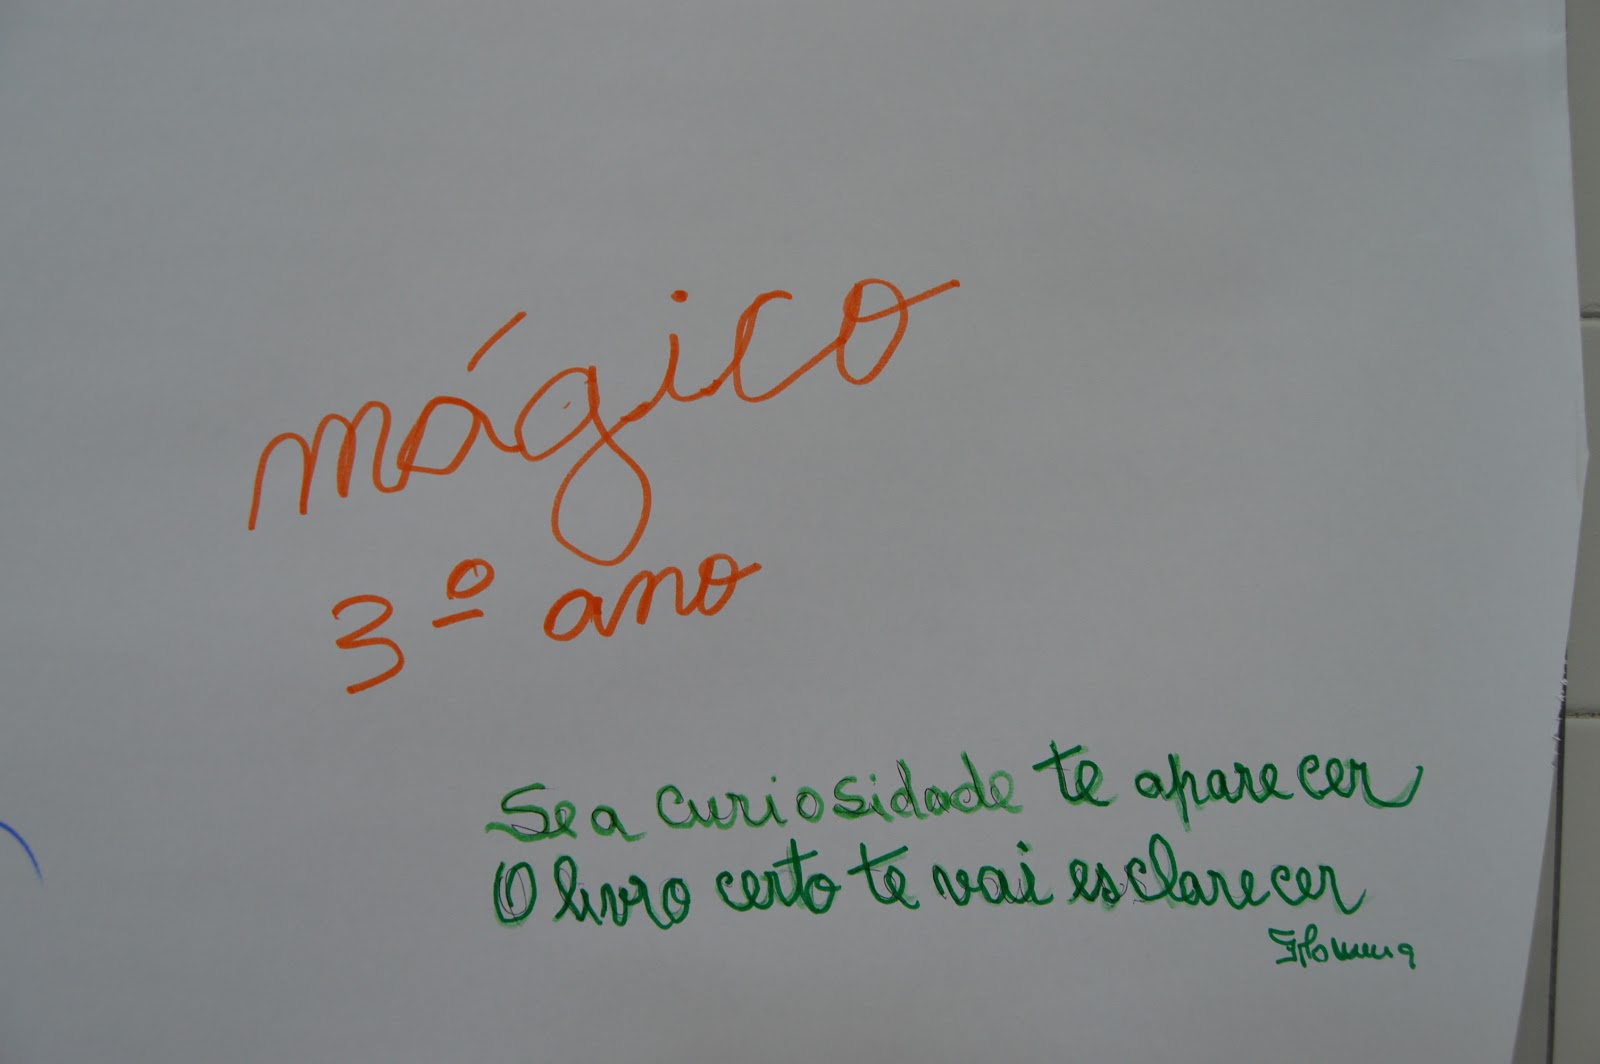 mágico
3º ano
Se a curiosidade te aparecer
O livro certo te vai esclarecer